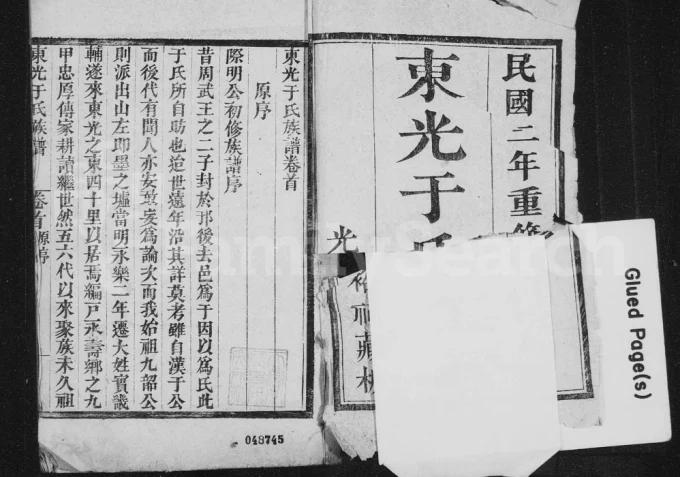 民國二年重修
東光于氏
光裕祠藏板
東光于氏族譜卷首
原序
際明公初修族譜序
昔周武王之二子封於邘後去邑為于因以為氏此
于氏所自助也迨世遠年沿其詳莫考雖自漢于公
而後代有聞人亦安敢妄為論次而我始祖九韶公
則派出山左即墨之墟當明永樂二年遷大姓實畿
輔遂來東光之東四十里以居焉編戸永壽鄉之九
甲忠厚傳家耕讀繼世然五六代以來聚族未久祖
東光于氏族譜 卷首原序
048745
Glued Page(s)
FamilySearch